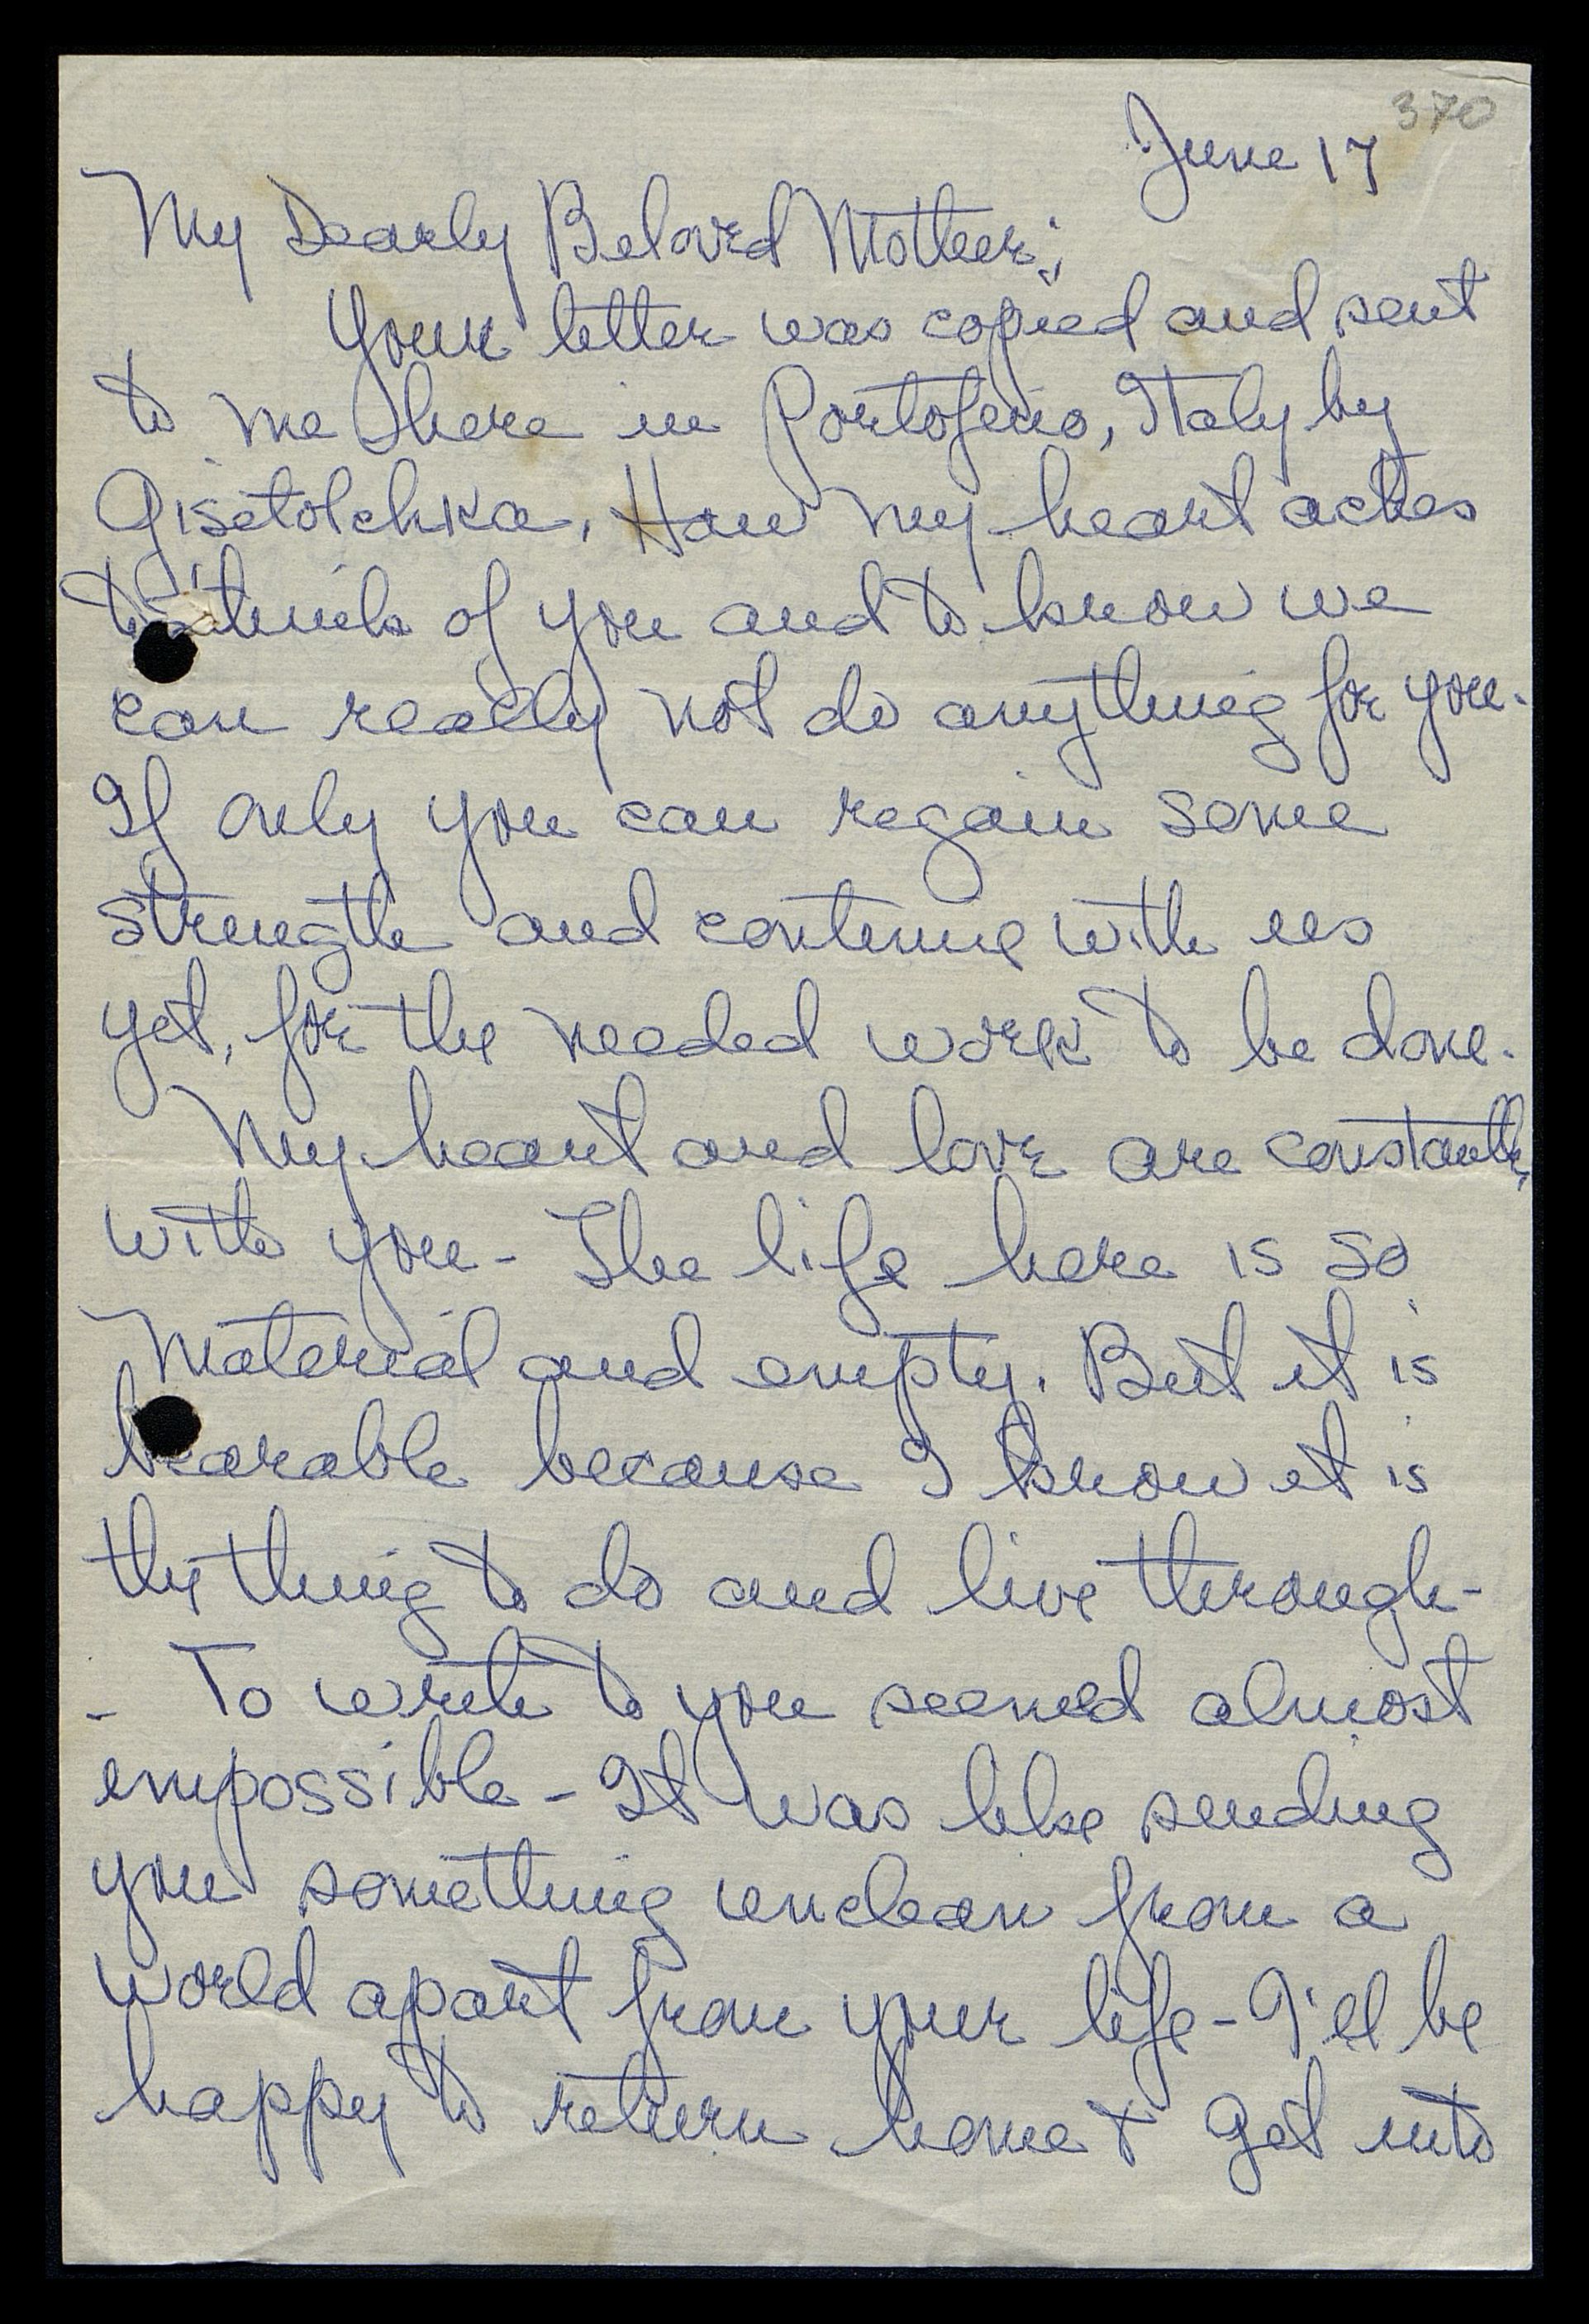 370
June 17
My Dearly Beloved Mother;
Your letter was copied and sent
to me here in Portofino, Italy by
Gisetotchka. How my heart aches
to think of you and to know we
can really not do anything for you.
If only you can regain some
strength and continue with us
yet, for the needed work to be done.
My heart and love are constantly
with you - The life here is so
material and empty. But it is
bearable because I know it is
the thing to do and live through -
- To write to you seemed almost
impossible - It was like sending
you something unclean from a
world apart from your life - I'll be
happy to return home & get into